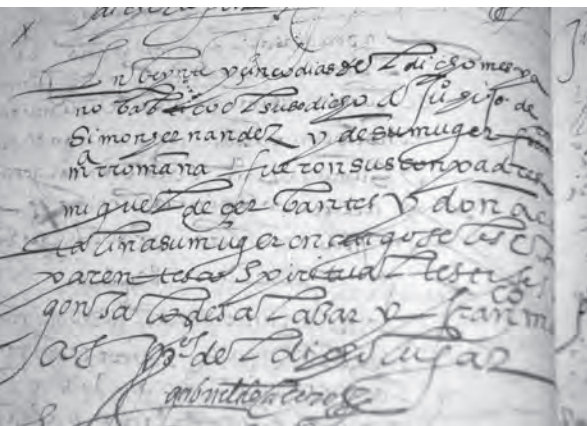 En beynte y çinco dias del dicho mes y a
no babtiço el susodicho a Juº hijo de
Simon hernandez y de su muger
mª rromana fueron sus conpadres
miguel de çerbantes y doña ca
talina su muger encargosele el
parentesco spiritual testigos
gonsalo de salaçar y franco
vºs del dicho lugar
gabriel